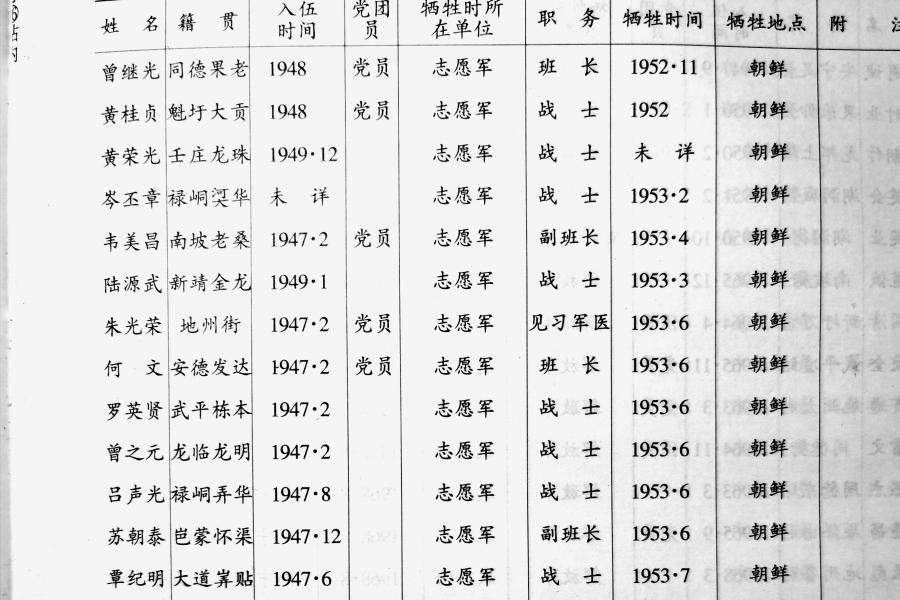 姓 名 籍 贯 入伍时间 党团员 牺牲时所在单位 职 务 牺牲时间 牺牲地点 附 注
曾继光 同德果老 1948 党员 志愿军 班 长 1952·11 朝鲜
黄桂贞 魁圩大贡 1948 党员 志愿军 战 士 1952 朝鲜
黄荣光 壬庄龙珠 1949·12 志愿军 战 士 未 详 朝鲜
岑丕章 禄峒渓华 未 详 志愿军 战 士 1953·2 朝鲜
韦美昌 南坡老桑 1947·2 党员 志愿军 副班长 1953·4 朝鲜
陆源武 新靖金龙 1949·1 志愿军 战 士 1953·3 朝鲜
朱光荣 地州街 1947·2 党员 志愿军 见习军医 1953·6 朝鲜
何 文 安德发达 1947·2 党员 志愿军 班 长 1953·6 朝鲜
罗英贤 武平栋本 1947·2 志愿军 战 士 1953·6 朝鲜
曾之元 龙临龙明 1947·2 志愿军 战 士 1953·6 朝鲜
吕声光 禄峒弄华 1947·8 志愿军 战 士 1953·6 朝鲜
苏朝泰 岜蒙怀渠 1947·12 志愿军 副班长 1953·6 朝鲜
覃纪明 大道峎贴 1947·6 志愿军 战 士 1953·7 朝鲜